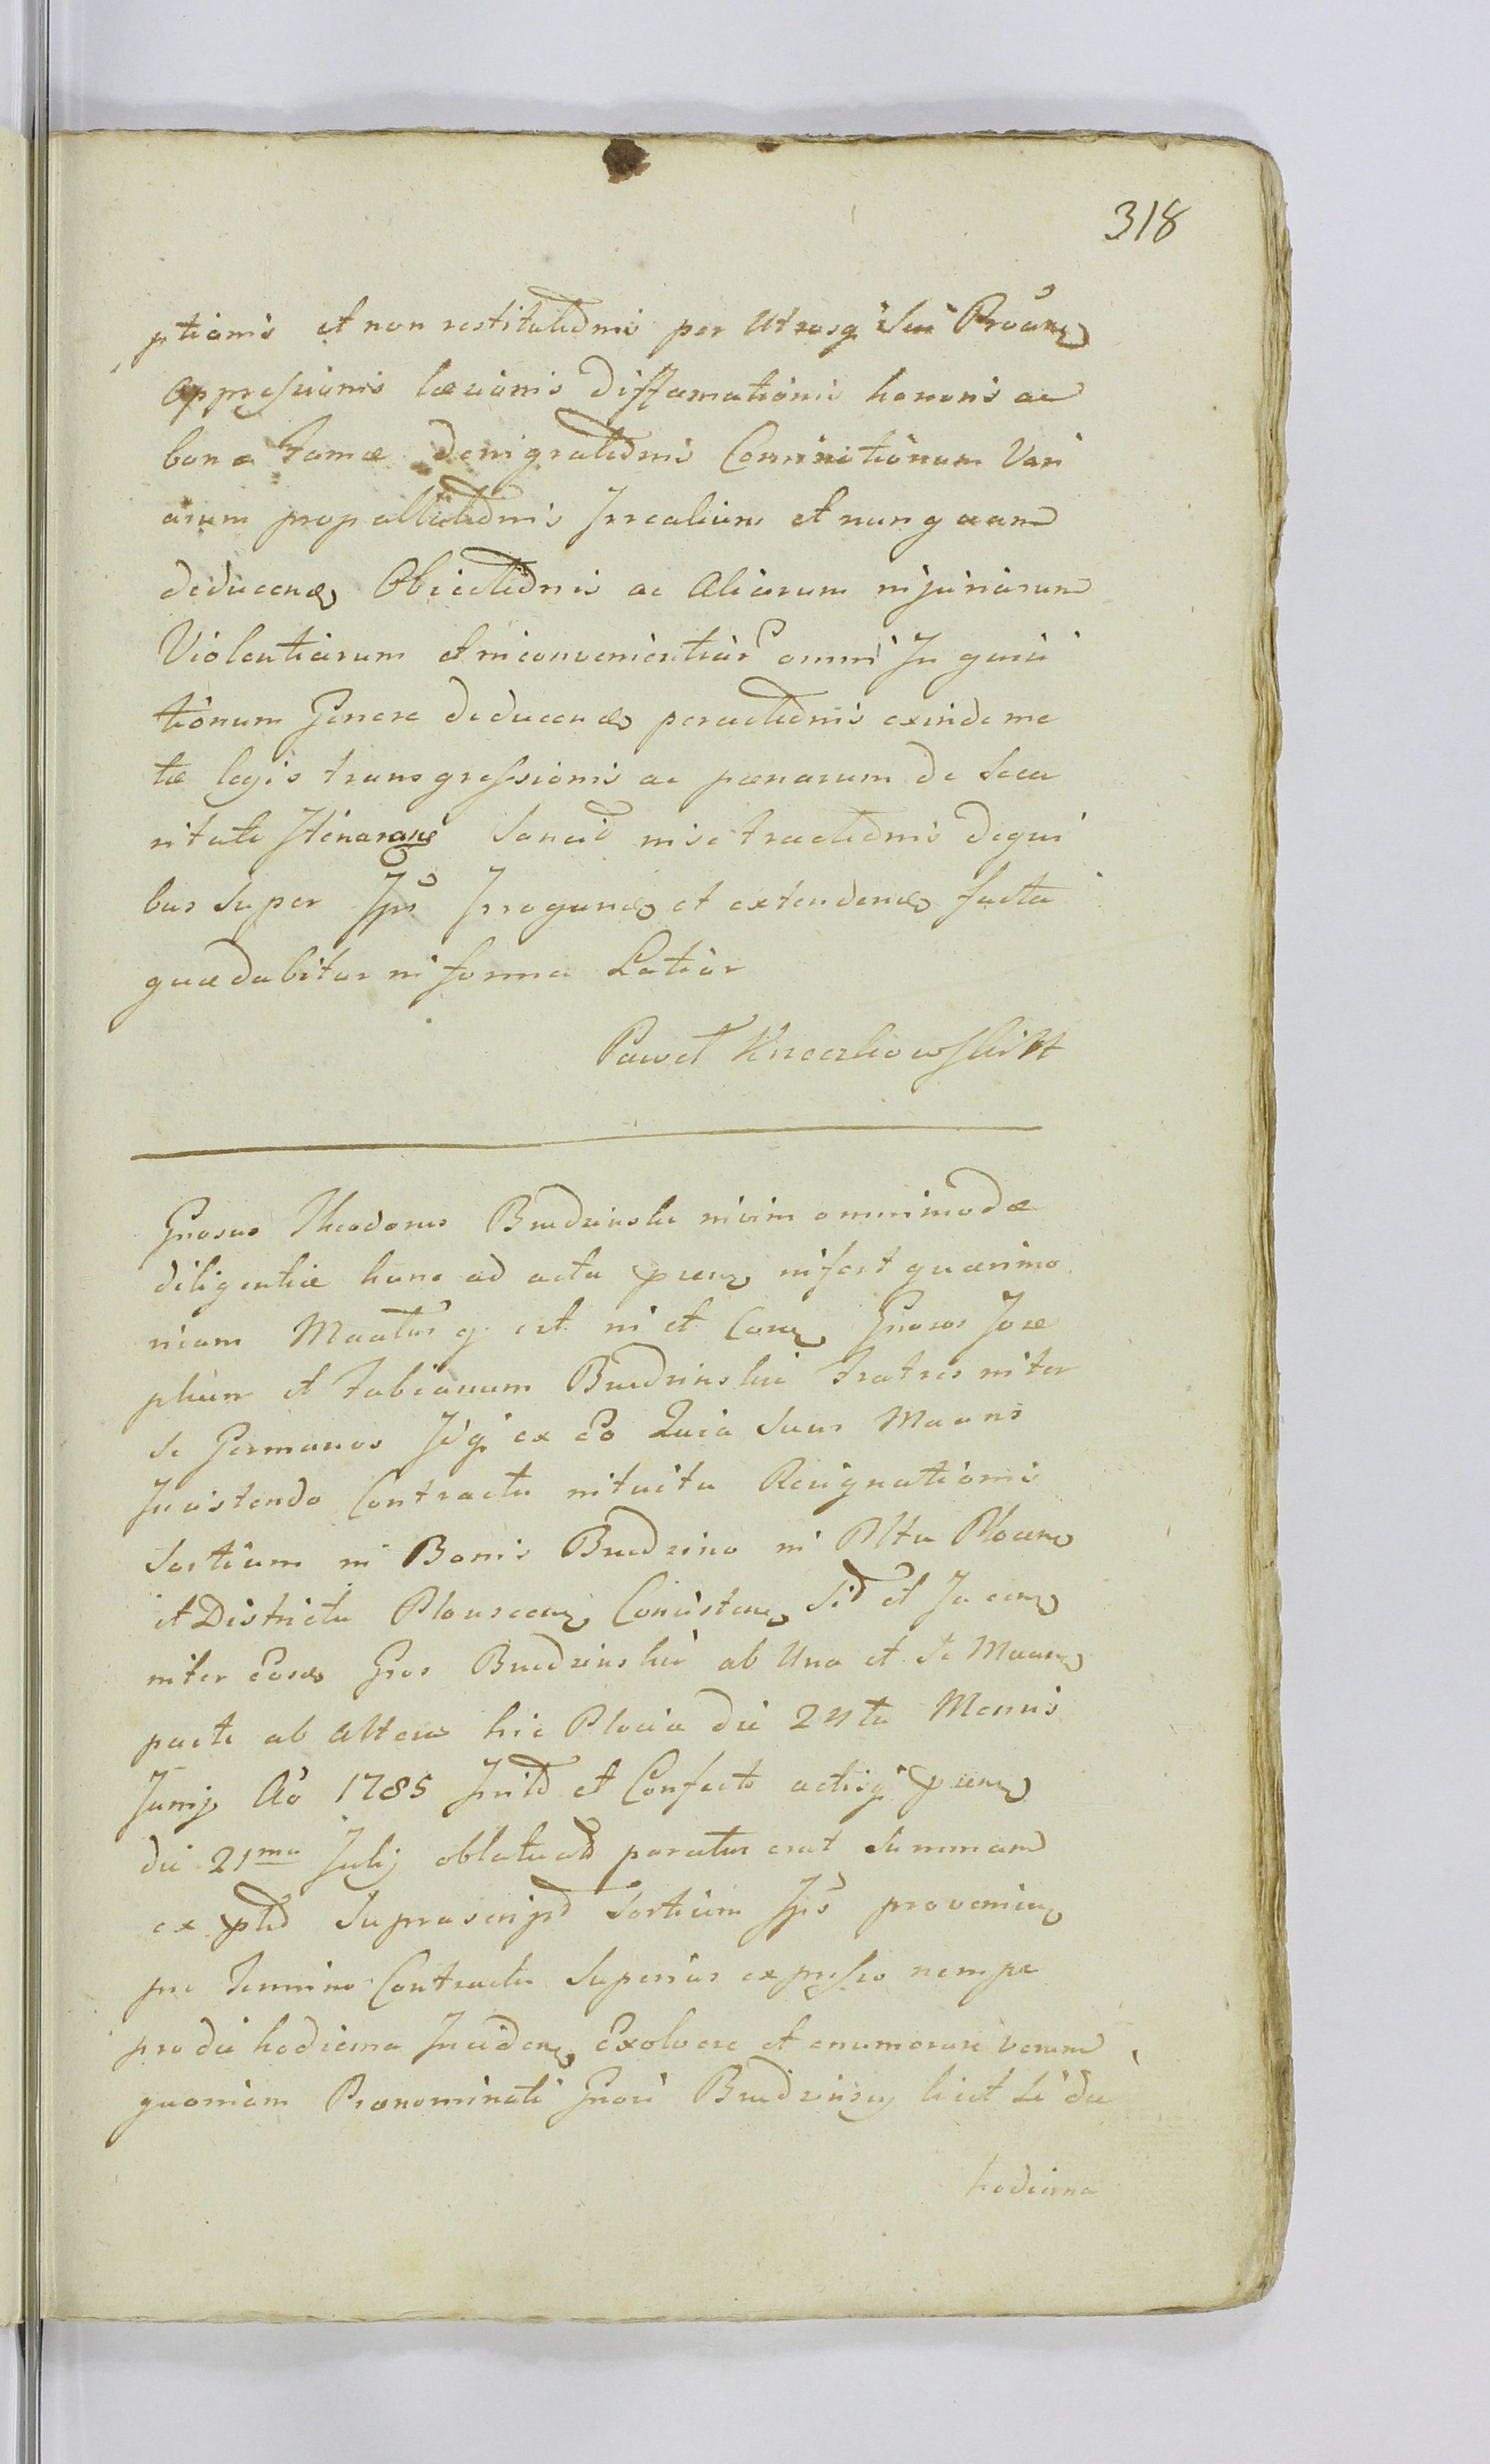 318
ptionis et non restitutionis per Utrosq Sui Proanz
Oppressionis læsionis diffamationis honoris ac
bonæ Famæ denigrationis Comminationum Vari
arum propallationis Irrealium et nunquam
deducend Obiectionis ac Aliarum injuriarum
Violentiarum et inconvenientiar omni Inquisi
tionum Genere deducend peractionis exinde me
tæ legis transgressionis ac pœnarum de Secu
ritate Itinerane Sancit in se tractionis de qui
bus super Ips Irrogand et extendend facta
quæ dabitur in forma Latior
Paweł
Gnosus Theodorus Brudzinski nivim omnimodæ
diligentiæ hanc ad acta præns infert quærimo
niam Maatus q est in et Con Gnosos Jose
phum et Fabianum Brudzinskie Fratres inter
se Germanos Idq ex Eo Quia Suus Maans
Insistendo Contractu intuitu Resignationis
Sortium in Bonis Brudzino in Pltu Plocen
et Districtu Plonscen Consisten Sit et Jacen
inter Eosd Gnos Brudzinskie ab Una et Se Maan
parte ab Altera hic Plociæ die 24ta Mensis
Junij Ao 1785 Init et Confecto actisq præn
die 21ma Julij oblatuat paratus erat Summam
ex ptd Suprascript Sortium Ips provenien
pro Termino Contractu Superius expresso nempe
pro die hodierna Inciden Exolvere et enumerare verum
quoniam Prænominati Gnosi Brudzinscy licet Si die
hodierna